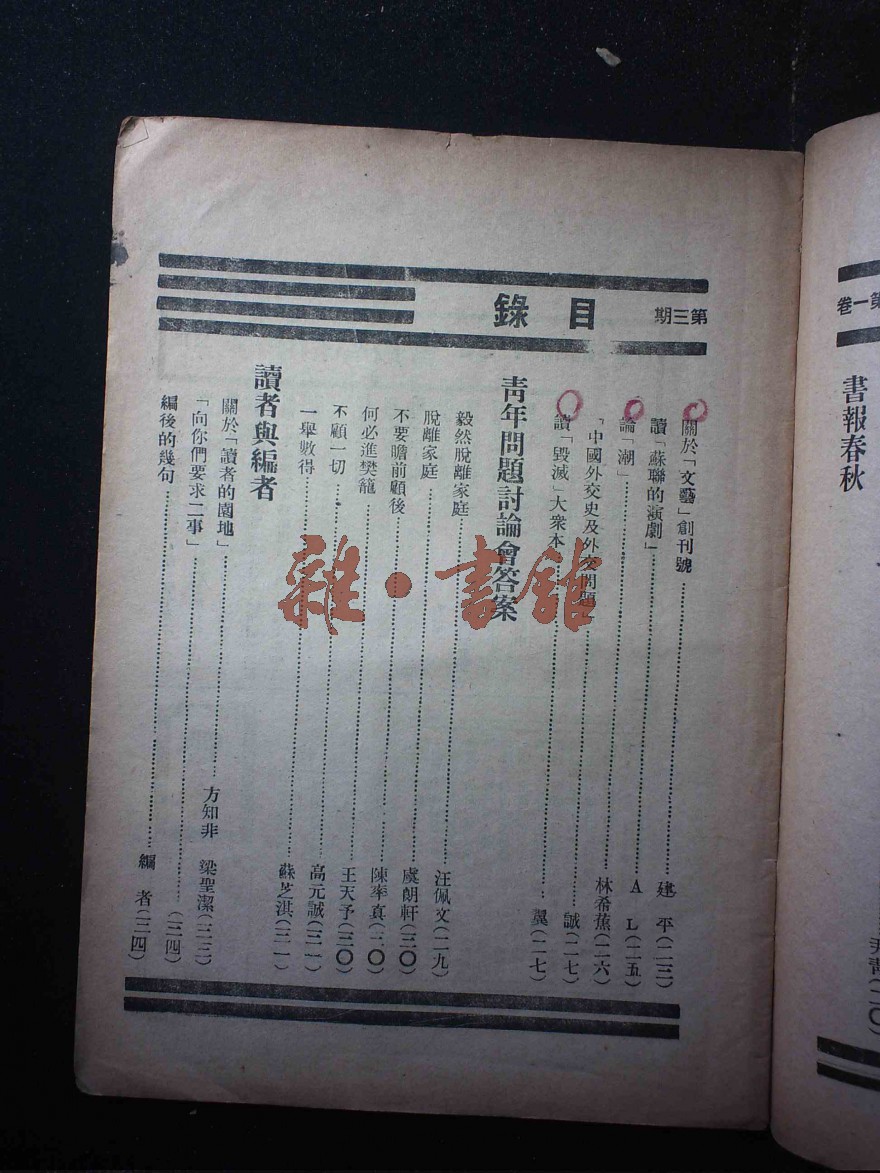 第一卷
書報春秋
青(二〇)
第三期
目錄
關於「文藝」創刊號……建 平(二三)
讀「蘇聯的演劇」……A L(二五)
論「潮」……林希蕉(二六)
「中國外交史及外交問題」……誠(二七)
讀「毀滅」大衆本……翼(二七)
青年問題討論會答案
毅然脫離家庭……汪佩文(二九)
脫離家庭……虞朗軒(三〇)
不要瞻前顧後……陳率真(三〇)
何必進樊籠……王天予(三〇)
不顧一切……高元誠(三一)
一舉數得……蘇芝淇(三一)
讀者與編者
關於「讀者的園地」……方知非 梁聖潔(三三)
「向你們要求二事」……(三四)
編後的幾句……編 者(三四)
雜·書館